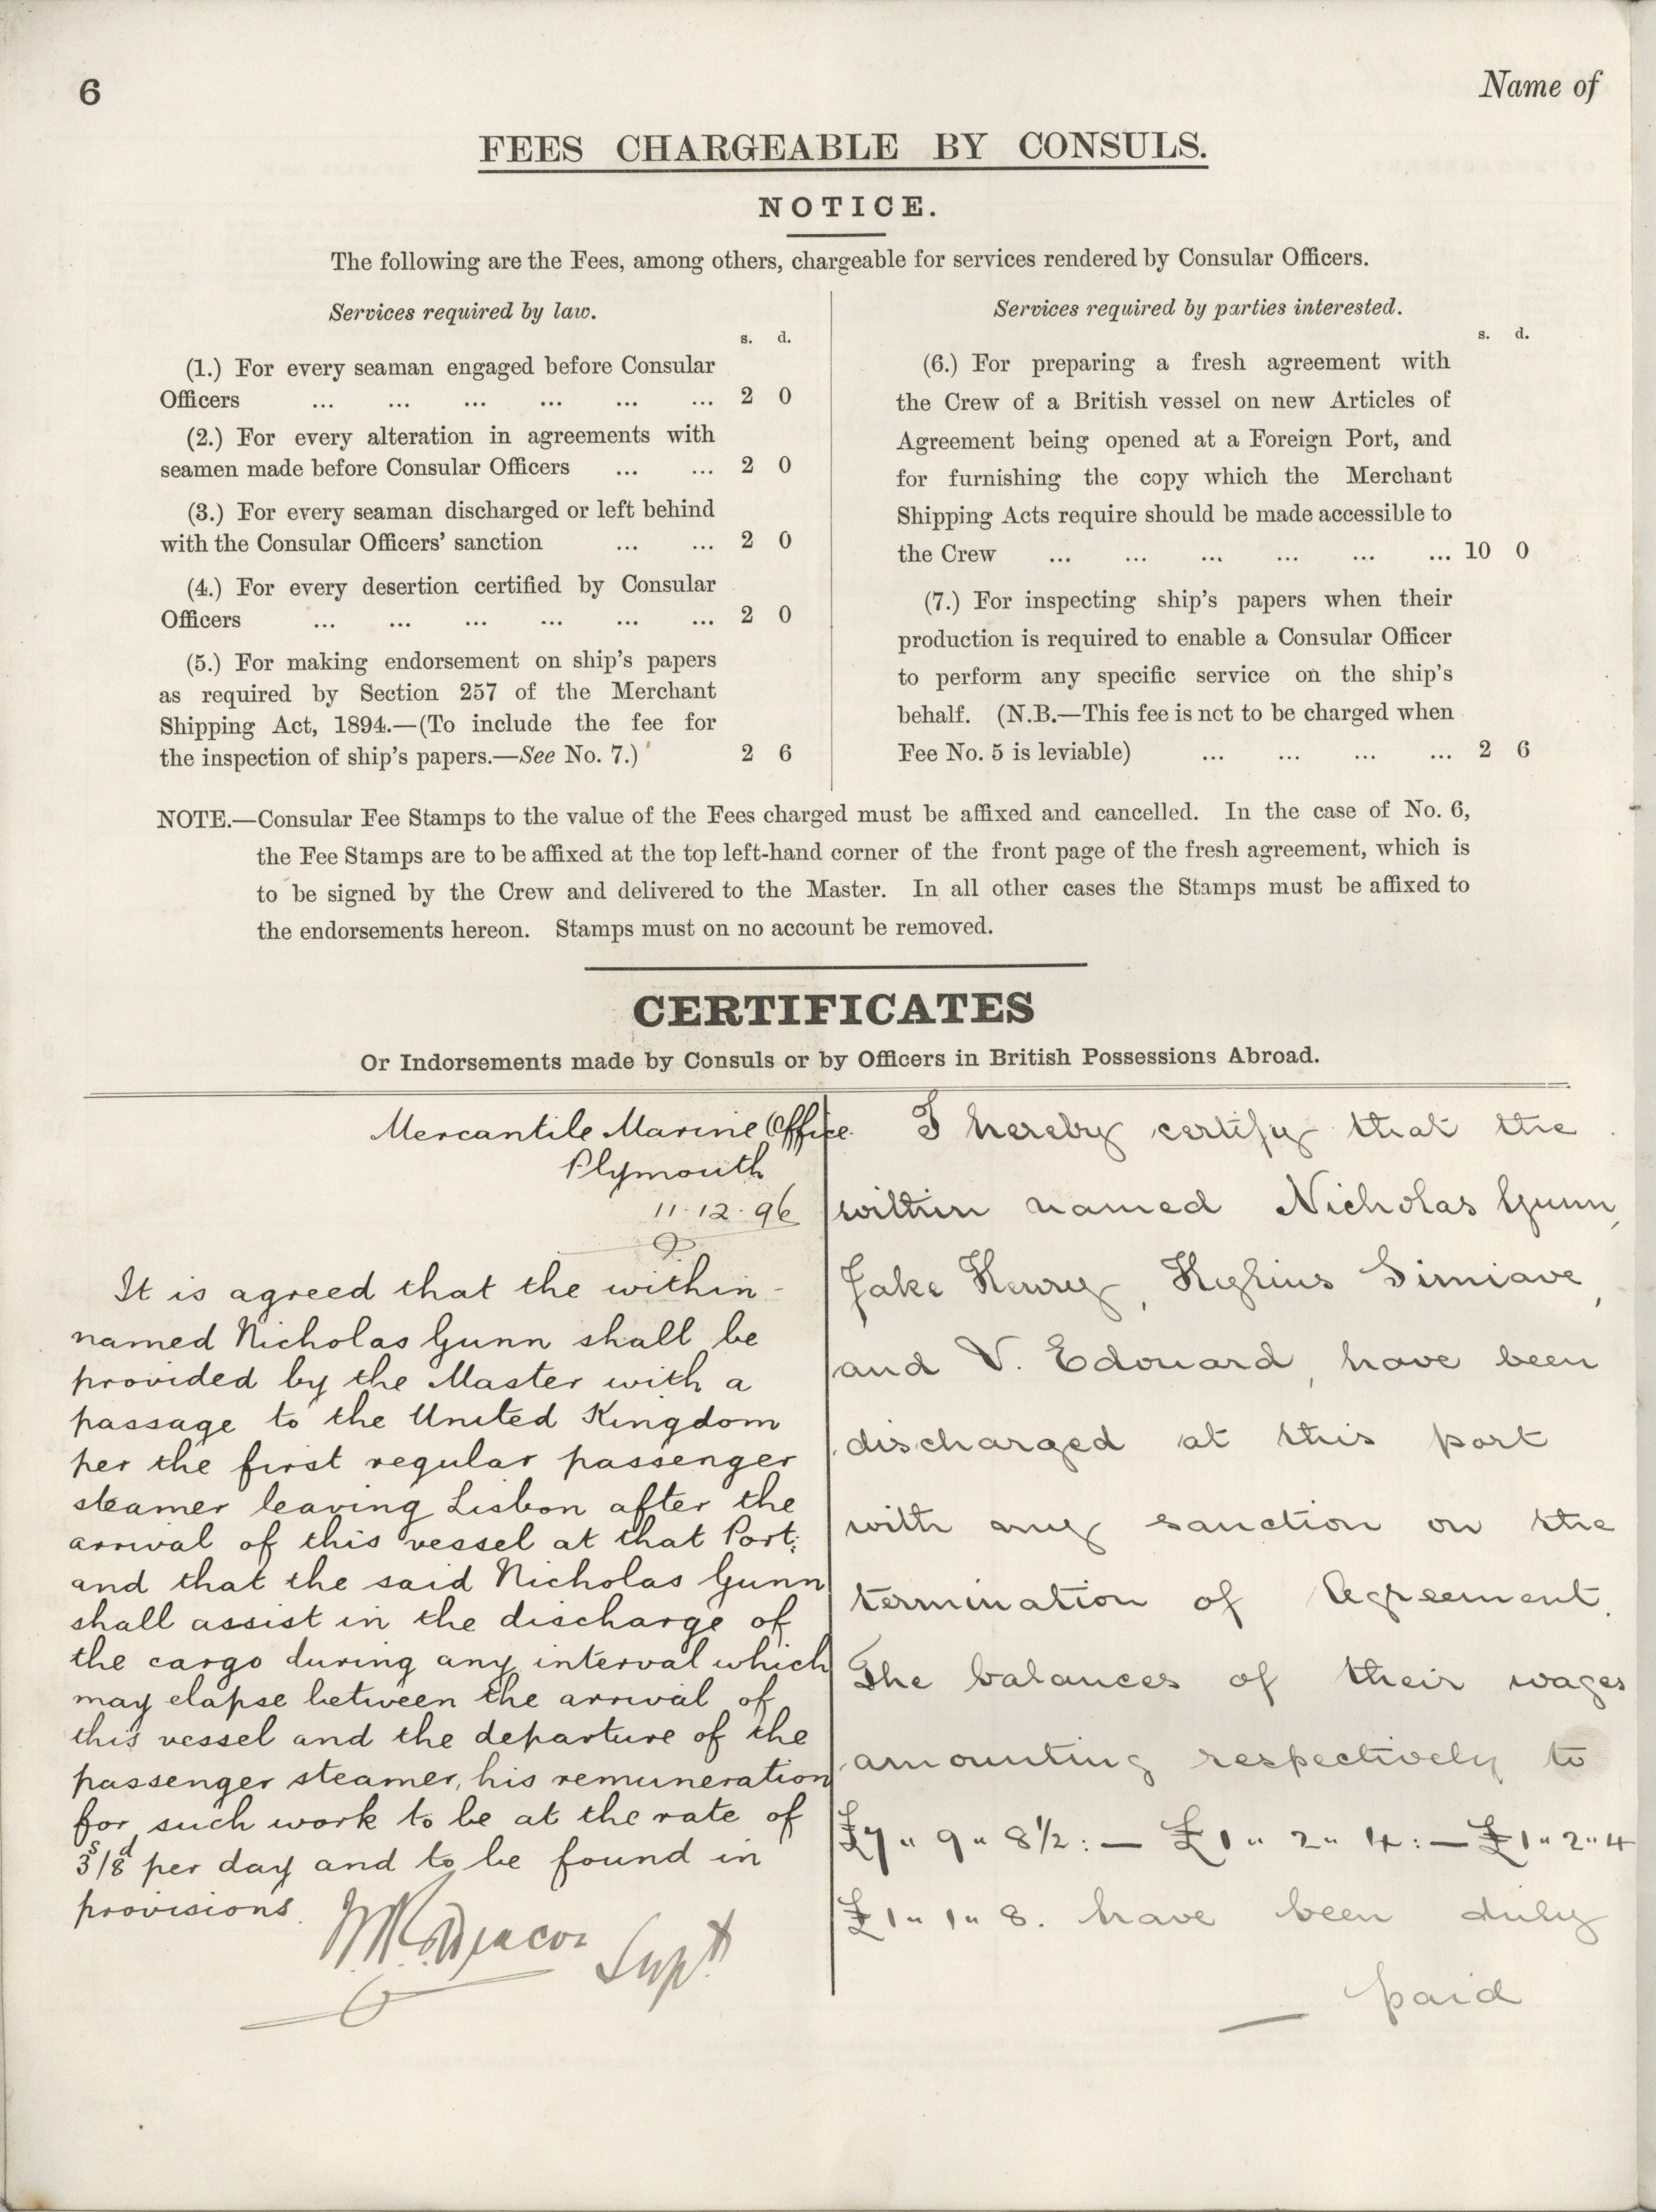 6
Name of
FEES CHARGEABLE BY CONSULS.
NOTICE.
The following are the Fees, among others, chargeable for services rendered by Consular Officers.
Services required by law.
s. d.
(1.) For every seaman engaged before Consular
Officers ... ... ... ... ... ... 2 0
(2.) For every alteration in agreements with
seamen made before Consular Officers ... ... 2 0
(3.) For every seaman discharged or left behind
with the Consular Officers' sanction ... ... 2 0
(4.) For every desertion certified by Consular
Officers ... ... ... ... ... ... 2 0
(5.) For making endorsement on ship's papers
as required by Section 257 of the Merchant
Shipping Act, 1894.—(To include the fee for
the inspection of ship's papers.—See No. 7.) 2 6
Services required by parties interested.
s. d.
(6.) For preparing a fresh agreement with
the Crew of a British vessel on new Articles of
Agreement being opened at a Foreign Port, and
for furnishing the copy which the Merchant
Shipping Acts require should be made accessible to
the Crew ... ... ... ... ... ... 10 0
(7.) For inspecting ship's papers when their
production is required to enable a Consular Officer
to perform any specific service on the ship's
behalf. (N.B.—This fee is not to be charged when
Fee No. 5 is leviable) ... ... ... ... 2 6
NOTE.—Consular Fee Stamps to the value of the Fees charged must be affixed and cancelled. In the case of No. 6,
the Fee Stamps are to be affixed at the top left-hand corner of the front page of the fresh agreement, which is
to be signed by the Crew and delivered to the Master. In all other cases the Stamps must be affixed to
the endorsements hereon. Stamps must on no account be removed.
CERTIFICATES
Or Indorsements made by Consuls or by Officers in British Possessions Abroad.
Mercantile Marine Office
Plymouth
11.12.96
It is agreed that the within-
named Nicholas Gunn shall be
provided by the Master with a
passage to the United Kingdom
per the first regular passenger
steamer leaving Lisbon after the
arrival of this vessel at that Port:
and that the said Nicholas Gunn
shall assist in the discharge of
the cargo during any interval which
may elapse between the arrival of
this vessel and the departure of the
passenger steamer, his remuneration
for such work to be at the rate of
3s/8d per day and to be found in
provisions.
Deacon Supt.
I hereby certify that the
within named Nicholas Gunn,
Jake Henry, Simiave,
and V. Edouard, have been
discharged at this port
with my sanction on the
termination of Agreement.
The balances of their wages
amounting respectively to
£7 " 9 " 8½ : — £1 " 2 " 4 : — £1 " 2 " 4
£1 " 1 " 8. have been duly
— paid